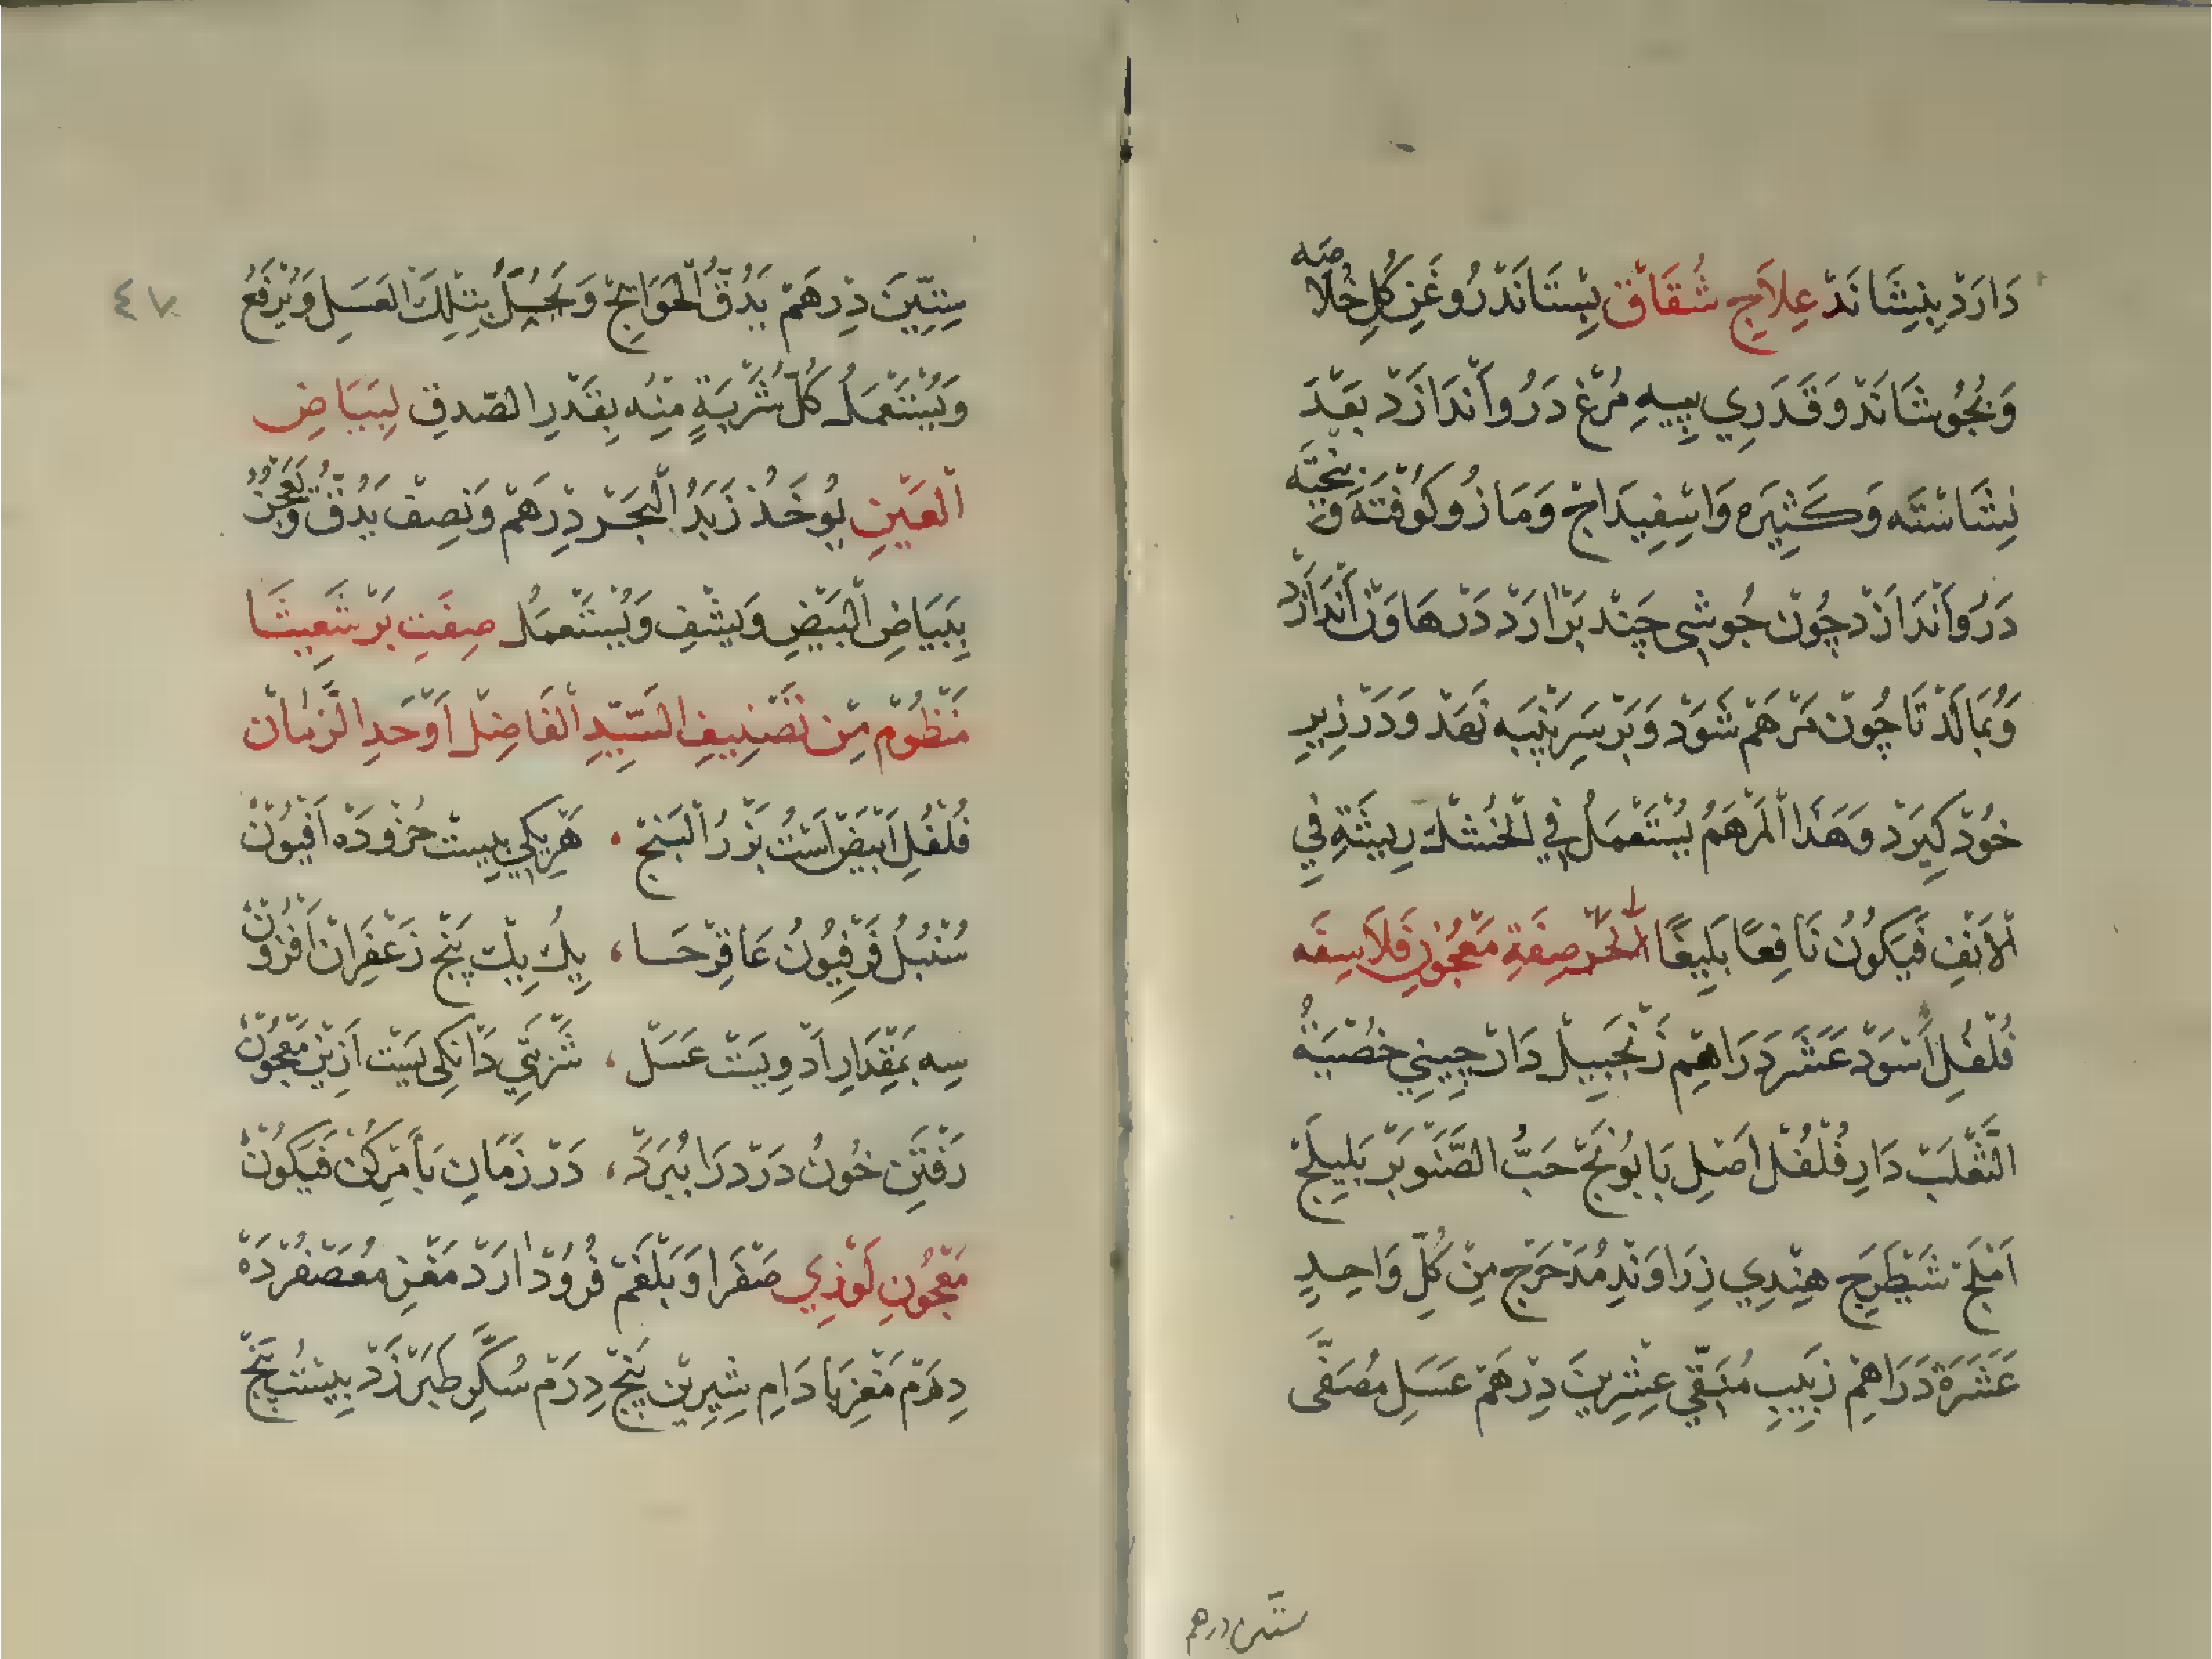 دَارَدْ بِنِشَانَدْ عِلَاجِ شُقَاقْ بِسْتَانَدْ رُوغَنِ كُلِ خُلَاصَه
وَبِجُوشَانَدْ وَقَدَرِي پِيهِ مُرْغْ دَرُو اَنْدَازَدْ بَعْدَ
نِشَاسْتَه وَكَثِيرَه وَاسْفِيدَاجْ وَمَازُو كُوفْتَه وَبِيخْتَه
دَرُو اَنْدَازَدْ چُونْ جُوشِي چَنْد بَرْآرَدْ دَرْ هَاوَنْ اَنْدَازَدْ
وَبِمَالَدْ تَا چُونْ مَرْهَمْ شَوَدْ وَبَرْ سَرِ پَنْبَه نَهَدْ وَدَرْ زِيرِ
خُودْ كِيرَدْ وَهَذَا الْمَرْهَمُ يُسْتَعْمَلُ فِي الْخُشْكْرِيشَةِ فِي
الْأَنْفِ فَيَكُونُ نَافِعًا بَلِيغًا صِفَةِ مَعْجُونِ فَلَاسِفَه
فُلْفُلِ أَسْوَدْ عَشَرَ دَرَاهِمْ زَنْجَبِيلْ دَارْچِينِي خُصْيَةُ
الثَّعْلَبْ دَارِ فُلْفُلْ اَصْلِ بَابُونَجْ حَبُّ الصَّنَوْبَرْ بَلِيلَجْ
اَمْلَجْ شَيْطَرَجِ هِنْدِي زِرَاوَنْدِ مُدَحْرَجْ مِنْ كُلِّ وَاحِدٍ
عَشَرَةُ دَرَاهِمْ زَبِيبِ مُنَقَّي عِشْرِينَ دِرْهَمْ عَسَلِ مُصَفَّى
ستين درهم
٤٧
سِتِّينَ دِرْهَمْ يَدُقُّ الْحَوَايِجْ وَيَحُلُّ بِتِلْكَ الْعَسَلِ وَيُرْفَعُ
وَيُسْتَعْمَلُ كُلُّ شُرْبَةٍ مِنْهُ بِقَدْرِ الصّدقِ لِبَيَاضِ
الْعَيْنِ يُوخَذْ زَبَدُ الْبَحْرْ دِرْهَمْ وَنِصْفْ يَدُقُّ وَيَعْجِنُ
بِبَيَاضِ الْبَيْضِ وَيَشْفِ وَيُسْتَعْمَلُ صِفَتِ بَرْشَعِيثَا
مَنْظُومْ مِنْ تَصْنِيفِ السَّيِّدِ الْفَاضِلْ اَوْحَدِ الزَّمَانْ
فُلْفُلِ اَبْيَضْ اَسْتُ بَزْرُ الْبَنْجْ ، هَرْ يَكِي بِيسْتْ جُزْو دَه اَفْيُونْ
سُنْبُلُ فَرْفِيُونُ عَاقِرْحَا ، يِكْ يِكْ پَنْجْ زَعْفَرَانْ اَفْزُونْ
سِه بِمِقْدَارِ اَدْوِيَتْ عَسَلْ ، شَرْبَتِي دَانْكِي بَسْتْ اَزِينْ مَعْجُونْ
رَفْتَنِ خُونُ دَرْد رَا بُبَرَدْ ، دَرْ زَمَانِ بَأَمْرِ كُنْ فَيَكُونْ
مَعْجُونِ لَوْزِي صَفْرَا وَبَلْغَمْ فُرُودْ آرَدْ مَغْزِ مُعَصْفَرْ دَه
دِرَمْ مَغْزِ بَادَامِ شِيرِينْ پَنْجْ دِرَمْ سُكَّرِ طَبَرْزَدْ بِيسْتُ پَنْجْ